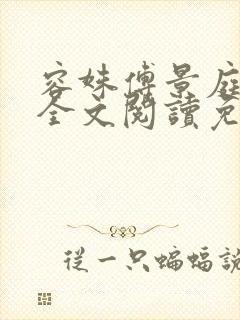 容妹傅景庭
全文閱讀免
從一只蝙蝠說